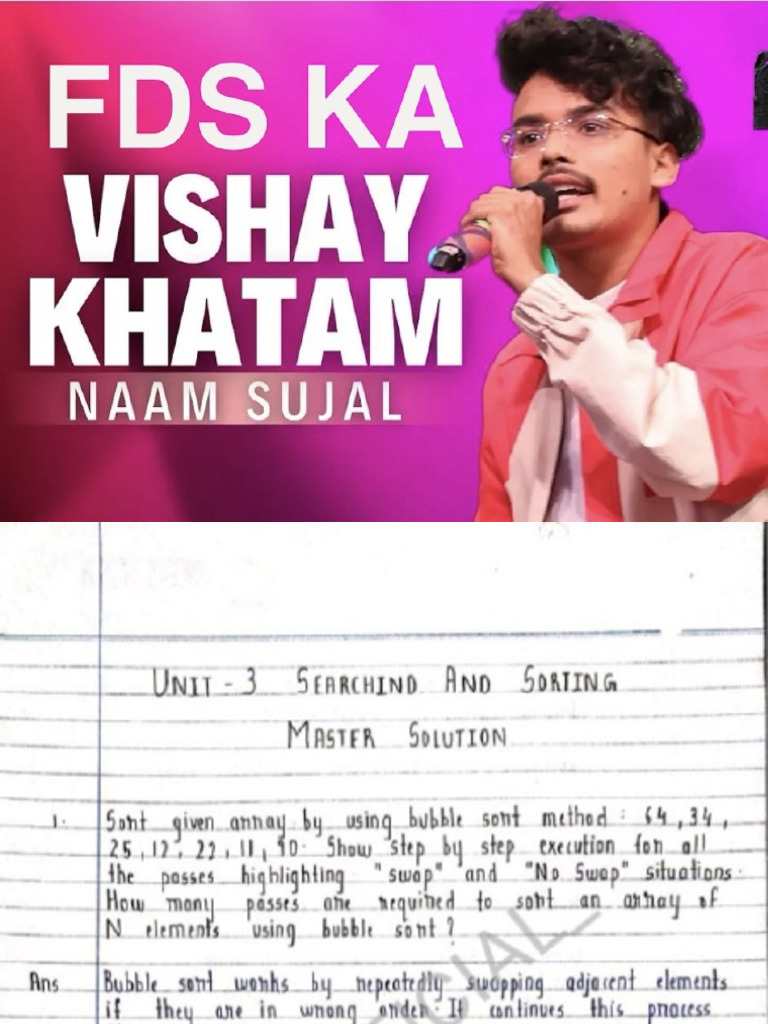 FDS KA
VISHAY
KHATAM
NAAM SUJAL
UNIT - 3 SEARCHIND AND SORTING
MASTER SOLUTION
1. Sort given array by using bubble sort method : 64, 34,
25, 12, 22, 11, 90. Show step by step execution for all
the passes highlighting "swap" and "No Swap" situations.
How many passes are required to sort an array of
N elements using bubble sort ?
Ans Bubble sort works by repeatedly swapping adjacent elements
if they are in wrong order. It continues this process